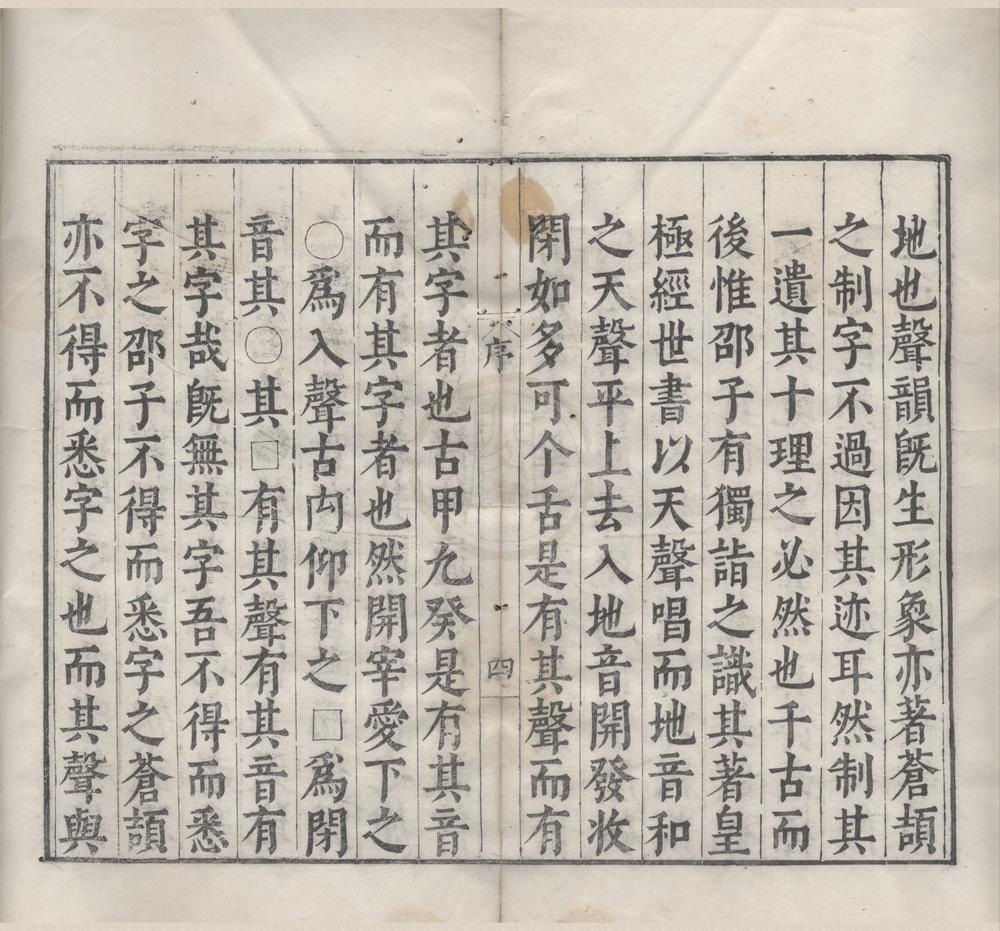 地也聲韻旣生形象亦著蒼頡
之制字不過因其迹耳然制其
一遺其十理之必然也千古而
後惟邵子有獨詣之識其著皇
極經世書以天聲唱而地音和
之天聲平上去入地音開發收
閉如多可个舌是有其聲而有
序
四
其字者也古甲九癸是有其音
而有其字者也然開宰愛下之
○爲入聲古冎仰下之□爲閉
音其○其□有其聲有其音有
其字哉旣無其字吾不得而悉
字之邵子不得而悉字之蒼頡
亦不得而悉字之也而其聲與